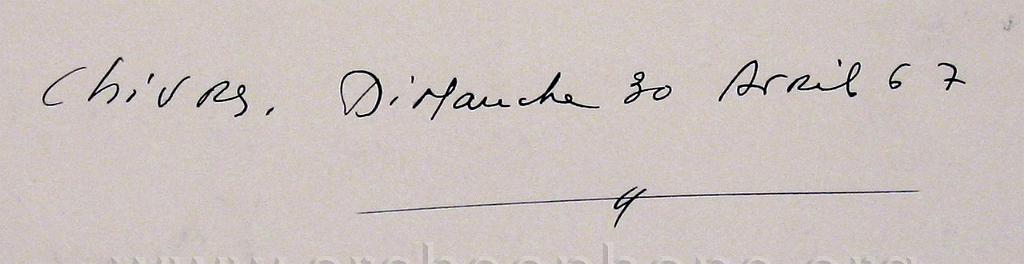 Chivres, Dimanche 30 Avril 67